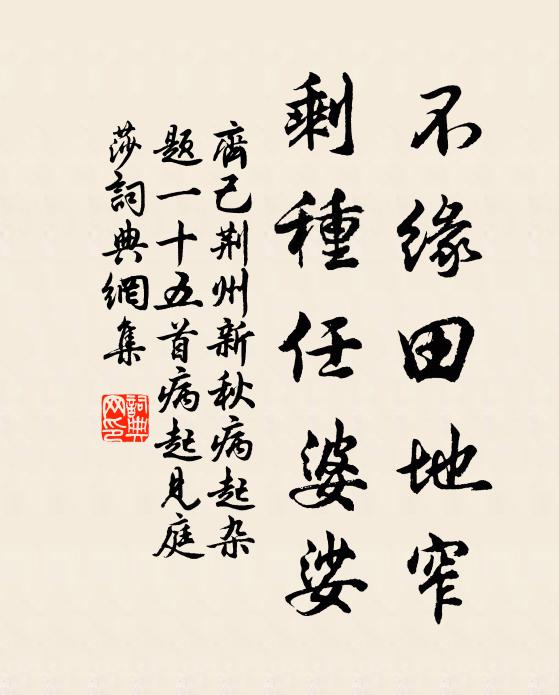 不緣田地窄
剩種任婆娑
齊己荆州新秋病起杂
题一十五首病起見庭
莎詞典網集
詞典
网印